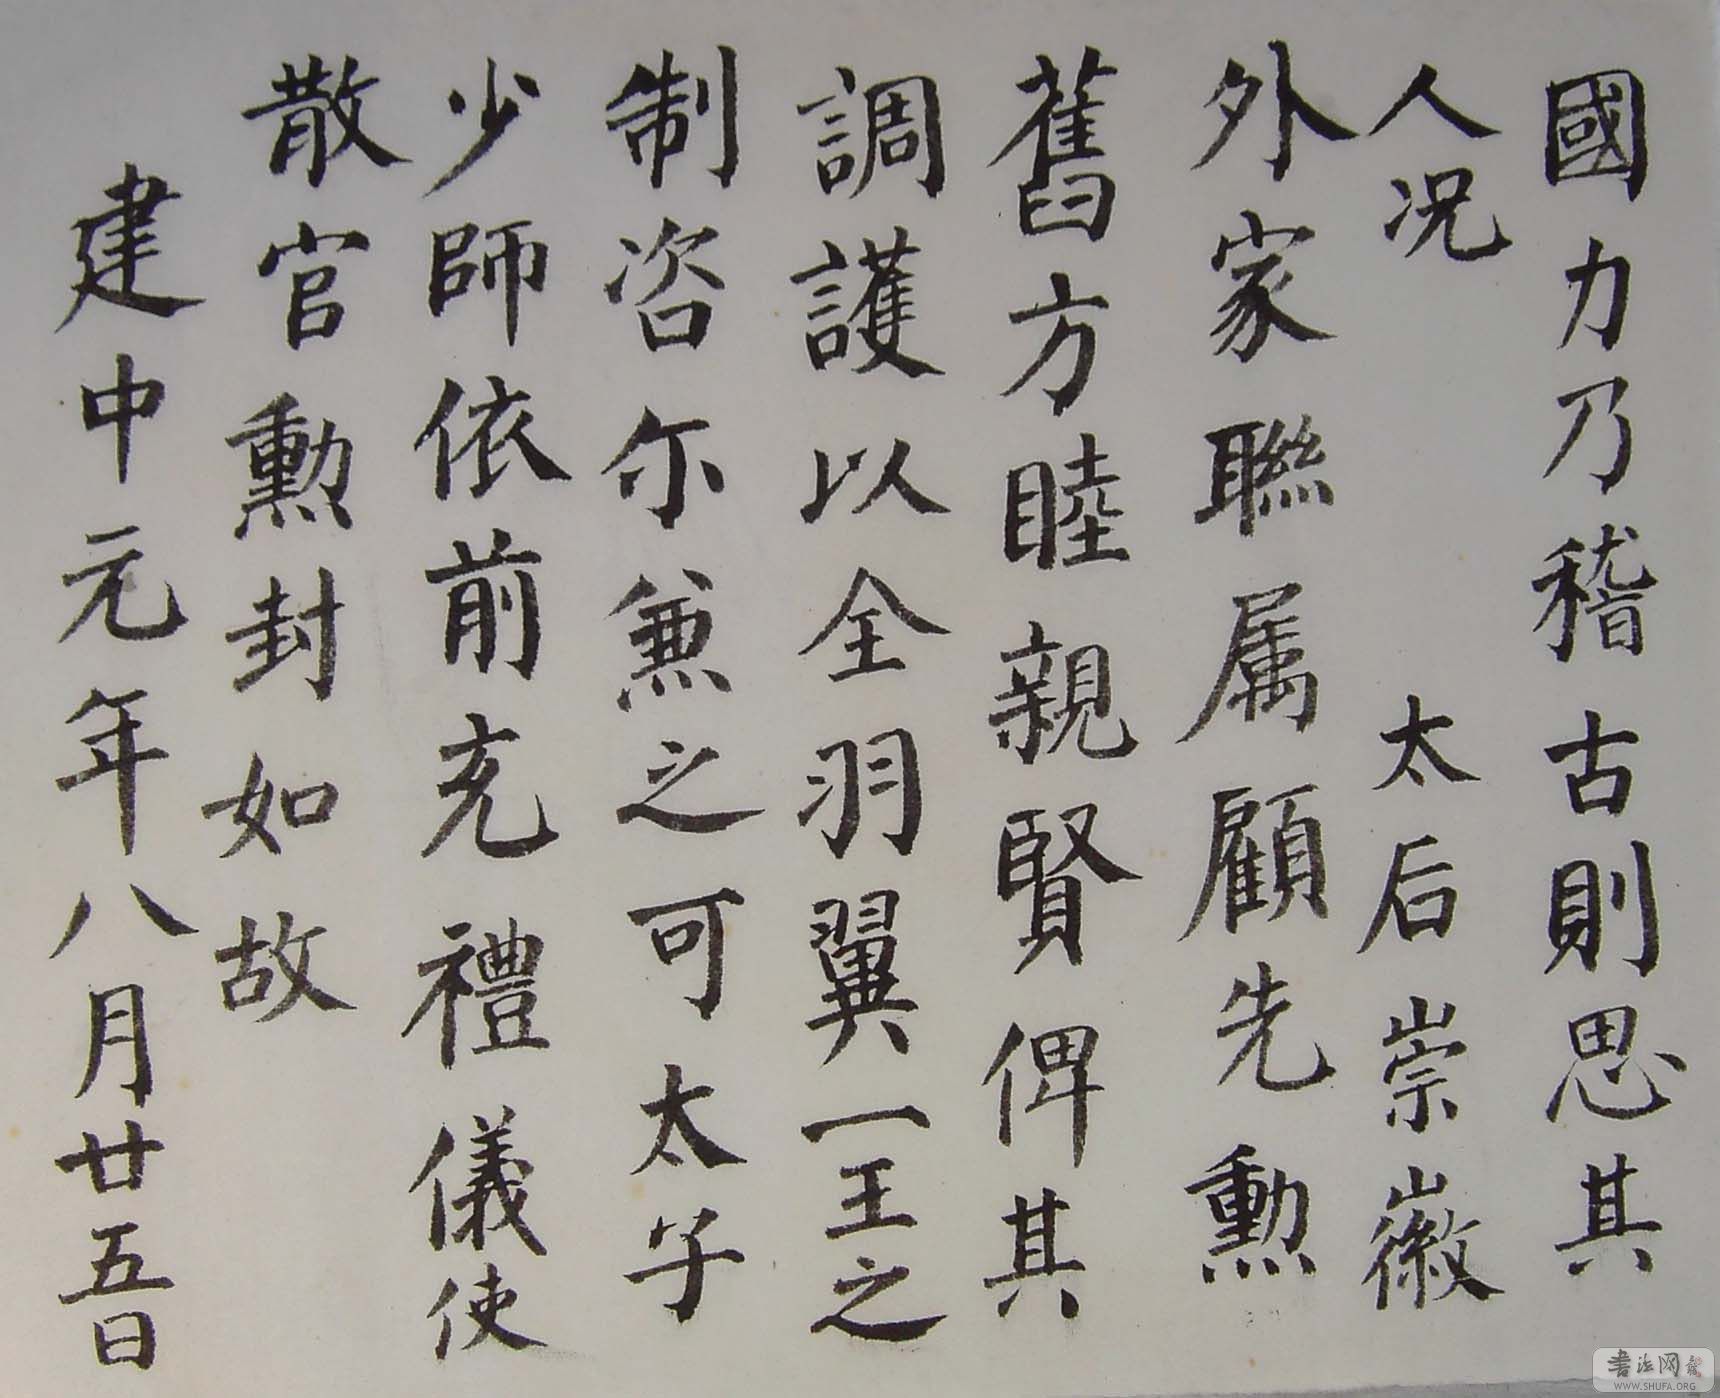 國力乃稽古則思其
人况 太后崇徽
外家聯属顧先勲
舊方睦親賢俾其
調護以全羽翼一王之
制咨尓兼之可太子
少師依前充禮儀使
散官勲封如故
建中元年八月廿五日
书法网
WWW.SHUFA.ORG